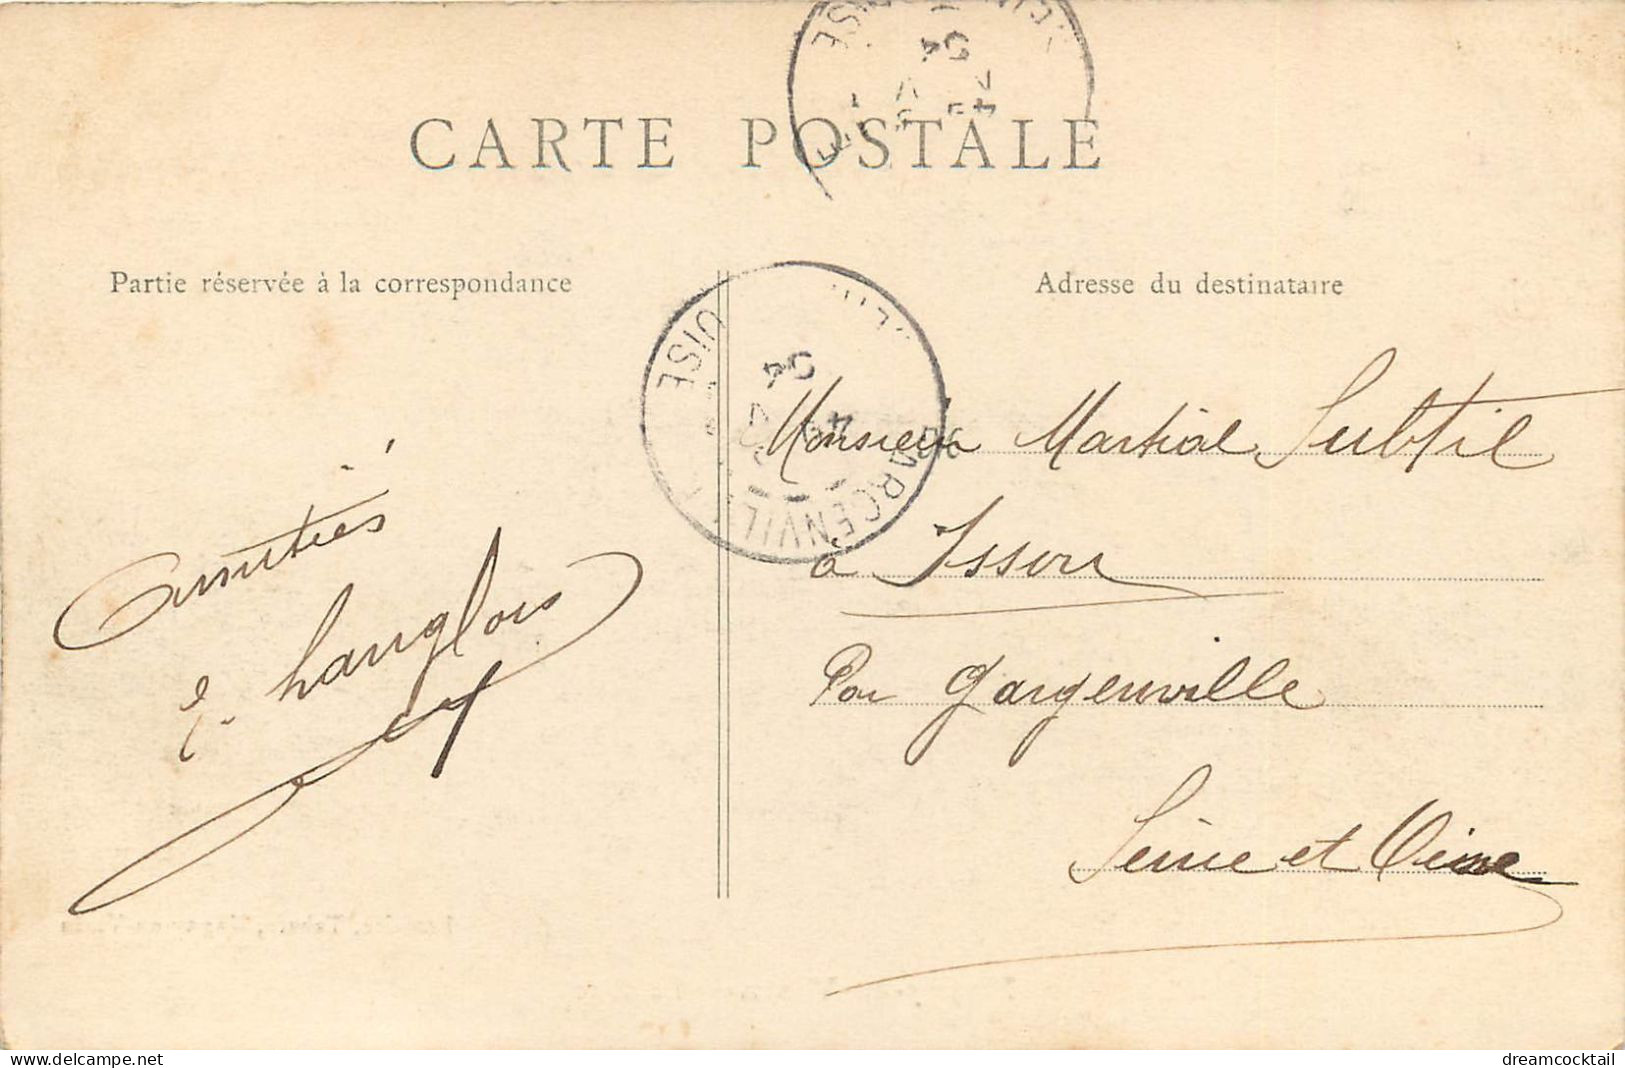 CARTE POSTALE
Partie réservée à la correspondance
Adresse du destinataire
Amitiés
E. Langlois
Monsieur Martial Subtil
à Issou
Par Gargenville
Seine et Oise
GARGENVILLE
OISE
04
OISE
04
www.delcampe.net
dreamcocktail